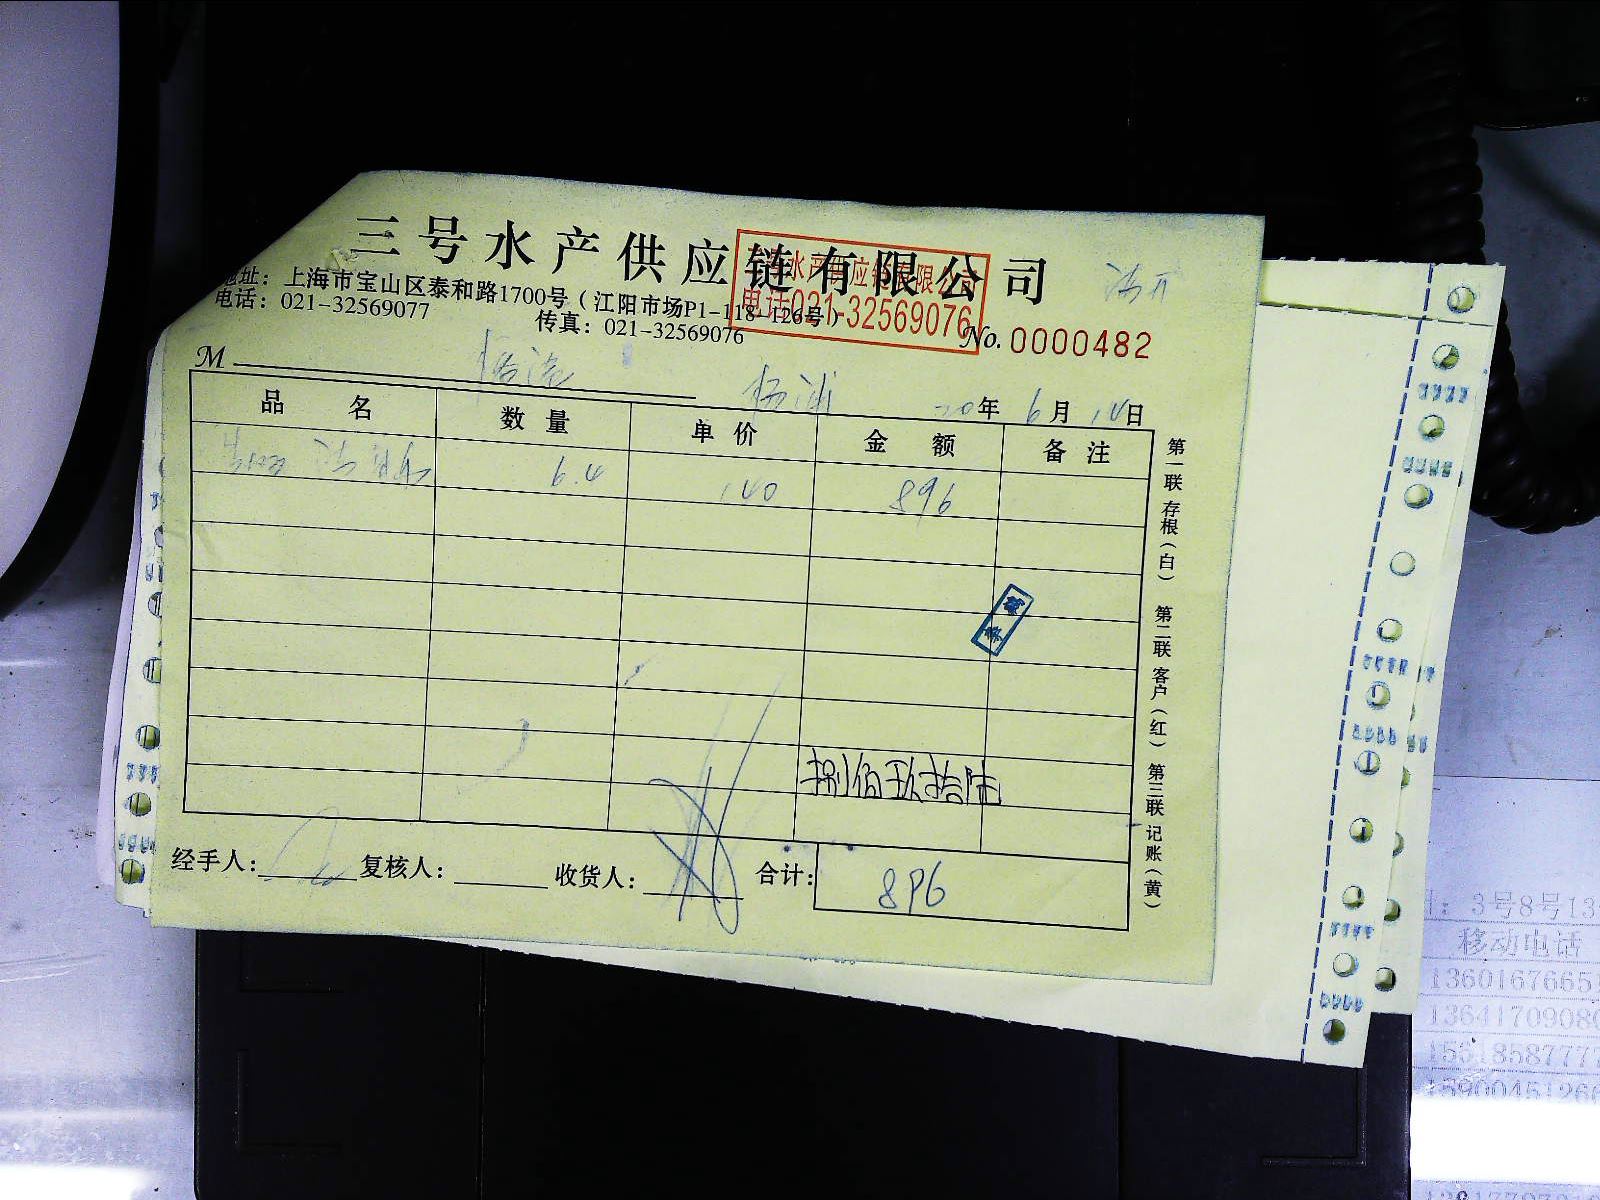 三号水产供应链有限公司
地址：上海市宝山区泰和路1700号（江阳市场P1-118-126号）
电话：021-32569077
传真：021-32569076
三号水产供应链有限公司
电话021-32569076
No. 0000482
M
20年 6月 10日
品名 数量 单价 金额 备注
6.4 140 896
捌佰玖拾陆
经手人： 复核人： 收货人： 合计： 896
第一联 存根（白） 第二联 客户（红） 第三联 记账（黄）
3号8号13
移动电话
1360167665
1364170908
1561858777
1590045126